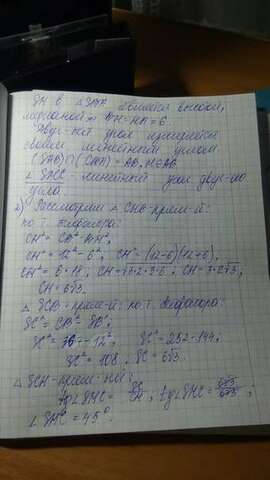 SH в △SAB является высотой,
медианой ⇒ BH = HA = 6.
Двугр-ный угол измеряется
своим линейным углом
(SAB)∩(CAB) = AB,
∠ - линейный угол двугр-ого
угла.
2) Рассмотрим △ CHB-прям-й:
по т. Пифагора:
CH² = CB² - BH²,
CH² = 12² - 6², CH² = (12-6)(12+6),
CH² = 6·18, CH = ; CH = 3·2√3,
CH = 6√3.
△ SCB-прям-й: по т. Пифагора:
SC² = CB² - SB²,
SC² = - 12², SC² = 252 - 144,
SC² = 108, SC = 6√3.
△ SCH-прям-ный:
tg∠SHC = SC/CH, tg∠SHC = 6√3/6√3,
∠SHC = 45°.